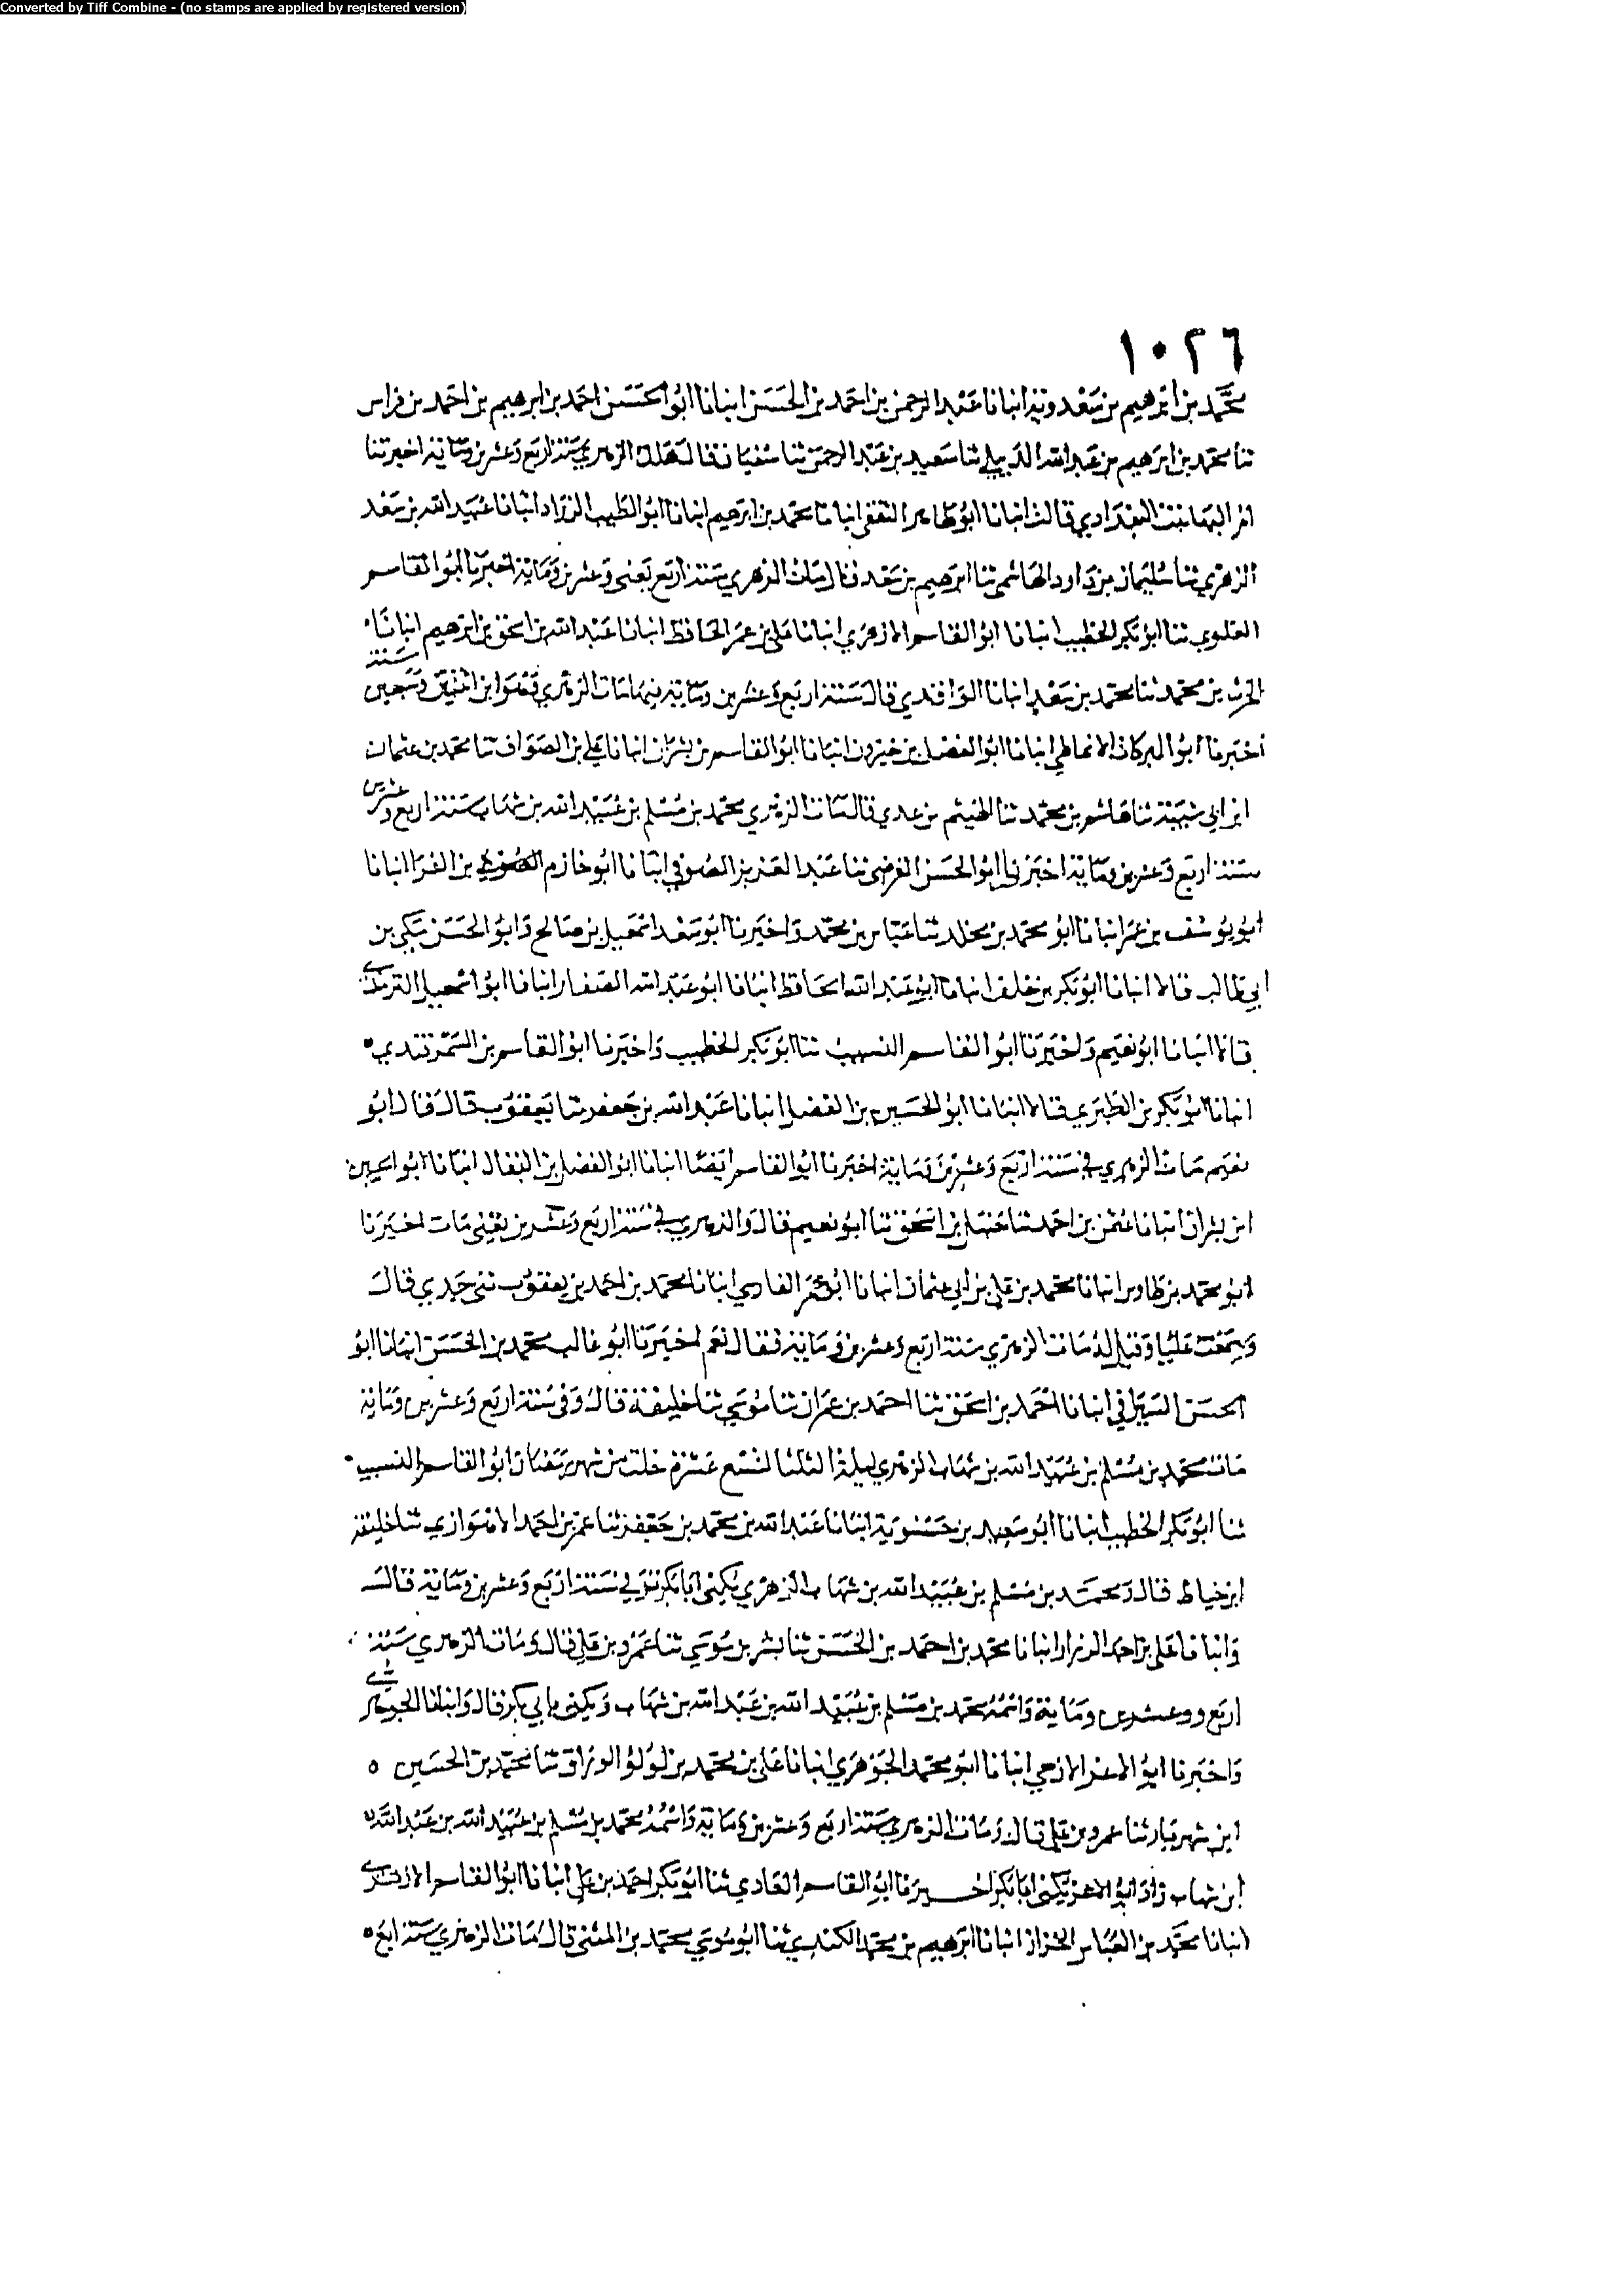 Converted by Tiff Combine - (no stamps are applied by registered version)
١٠٢٦
محمد بن ابرهيم بن سعدويه انبانا عبد الرحمن بن احمد بن الحسن انبانا ابو الحسن احمد بن ابرهيم بن احمد بن فراس
ثنا محمد بن ابرهيم بن عبد الله الديبلي ثنا سعيد بن عبد الرحمن ثنا سفيان قال هلك الزهري سنة اربع وعشرين ومائة اخبرتنا
ام البها بنت البغدادي قالت انبانا ابو طاهر الثقفي انبانا محمد بن ابرهيم انبانا ابو الطيب الزراد انبانا عبيد الله بن سعد
الزهري ثنا سليمان بن داود الهاشمي ثنا ابرهيم بن سعد قال مات الزهري سنة اربع يعني وعشرين ومائة اخبرنا ابو القاسم
العلوي ثنا ابو بكر الخطيب انبانا ابو القاسم الازهري انبانا علي بن عمر الحافظ انبانا عبد الله بن اسحق بن ابرهيم انبانا
الحرث بن محمد ثنا محمد بن سعد انبانا الواقدي قال سنة اربع وعشرين ومائة فيها مات الزهري وهو ابن اثنتين وسبعين سنة
اخبرنا ابو البركات الانماطي انبانا ابو الفضل بن خيرون انبانا ابو القاسم بن بشران انبانا علي بن الصواف ثنا محمد بن عثمان
ابن ابي شيبة ثنا هاشم بن محمد ثنا الهيثم بن عدي قال مات الزهري محمد بن مسلم بن عبيد الله بن شهاب سنة اربع وعشرين
سنة اربع وعشرين ومائة اخبرنا ابو الحسن الفرضي ثنا عبد العزيز الصوفي انبانا ابو خازم بن الفرا انبانا
ابو يوسف بن عمر انبانا ابو محمد بن مخلد ثنا عباس بن محمد واخبرنا ابو سعد اسمعيل بن صالح وابو الحسن مكي بن
ابي طالب قالا انبانا ابو بكر بن خلف انبانا ابو عبد الله الحافظ انبانا ابو عبد الله الصفار انبانا ابو اسمعيل الترمذي
قالا انبانا ابو نعيم واخبرنا ابو القاسم النسيب ثنا ابو بكر الخطيب واخبرنا ابو القاسم بن السمرقندي
انبانا ابو بكر بن الطبري قالا انبانا ابو الحسين بن الفضل انبانا عبد الله بن جعفر ثنا يعقوب قال قال ابو
نعيم مات الزهري في سنة اربع وعشرين ومائة اخبرنا ابو القاسم ايضا انبانا ابو الفضل بن البقال انبانا ابو الحسين
ابن بشران انبانا عثمن بن احمد ثنا حنبل بن اسحق ثنا ابو نعيم قال والزهري في سنة اربع وعشرين يعني مات اخبرنا
ابو محمد بن طاوس انبانا محمد بن علي بن ابي عثمان انبانا ابو عمر الفارسي انبانا محمد بن احمد بن يعقوب ثني جدي قال
وسمعت عليا وقيل له مات الزهري سنة اربع وعشرين ومائة فقال نعم اخبرنا ابو غالب محمد بن الحسن انبانا ابو
الحسن السيرافي انبانا احمد بن اسحق ثنا احمد بن عمران ثنا موسي ثنا خليفة قال وفي سنة اربع وعشرين ومائة
مات محمد بن مسلم بن عبيد الله بن شهاب الزهري ليلة الثلثا لسبع عشرة خلت من شهر رمضان ابو القاسم النسيب
ثنا ابو بكر الخطيب انبانا ابو سعيد بن حسنويه انبانا عبد الله بن محمد بن جعفر ثنا عمر بن احمد الاهوازي ثنا خليفة
ابن خياط قال ومحمد بن مسلم بن عبيد الله بن شهاب الزهري يكنى ابا بكر توفي سنة اربع وعشرين ومائة قال
وانبانا علي بن احمد الرزاز انبانا محمد بن احمد بن الحسن ثنا بشر بن موسي ثنا عمرو بن علي قال ومات الزهري سنة
اربع ووعشرين ومائة واسمه محمد بن مسلم بن عبيد الله بن عبد الله بن شهاب ويكنى بابي بكر قال وانبانا الجوهري
واخبرنا ابو الاعز الازجي انبانا ابو محمد الجوهري انبانا علي بن محمد بن لولو الوراق ثنا محمد بن الحسين ه
ابن شهريار ثنا عمرو بن علي قال ومات الزهري سنة اربع وعشرين ومائة واسمه محمد بن مسلم بن عبيد الله بن عبد الله
ابن شهاب زاد ابو الاعز يكنى ابا بكر اخبرنا ابو القاسم العلوي ثنا ابو بكر احمد بن علي انبانا ابو القاسم الازهري
انبانا محمد بن العباس الخزاز انبانا ابرهيم بن محمد الكندي ثنا ابو موسي محمد بن المثنى قال مات الزهري سنة اربع